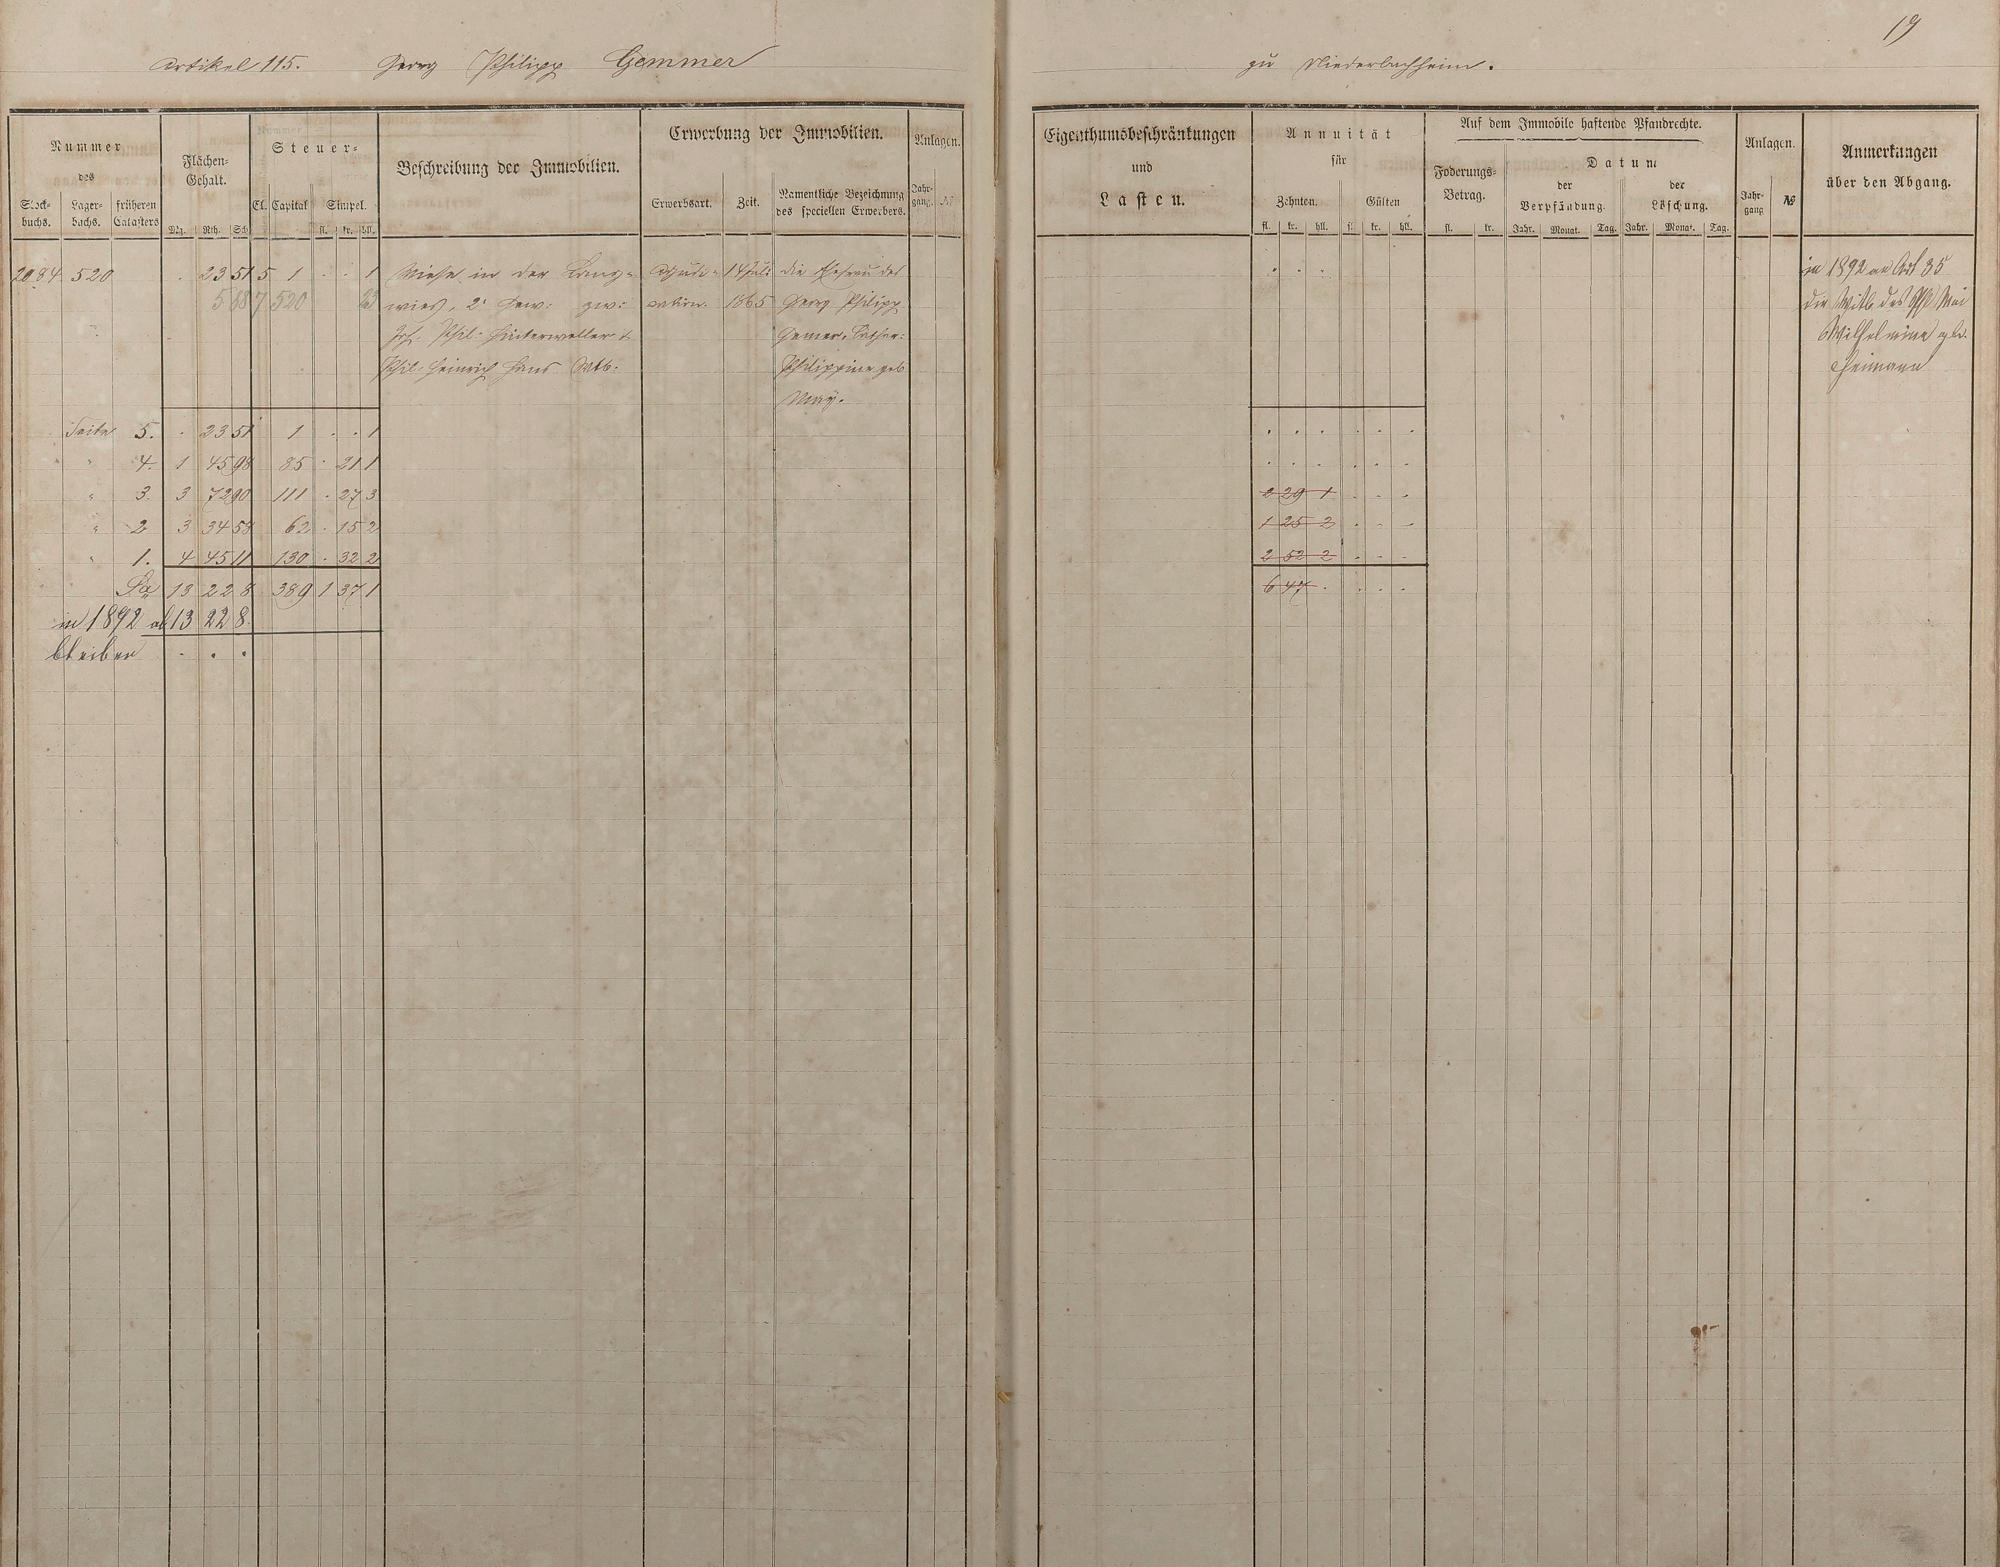 19
Artikel 115. Georg Philipp Gemmer zu Niederbachheim.
Nummer
des
Stock-
buchs.
Lager-
buchs.
früheren
Catasters
Flächen-
Gehalt.
Mg. Rth. Sch
Steuer-
Cl. Capital Simpel.
fl. kr. hll.
Beschreibung der Immobilien.
Erwerbung der Immobilien.
Erwerbsart. Zeit.
Namentliche Bezeichnung
des speciellen Erwerbers.
Anlagen.
Jahr-
gang. №
Eigenthumsbeschränkungen
und
Lasten.
Annuität
für
Zehnten. Gülten
fl. kr. hll. fl. kr. hll.
Auf dem Immobile haftende Pfandrechte.
Foderungs-
Betrag.
fl. kr.
Datum
der
Verpfändung.
der
Löschung.
Jahr. Monat. Tag. Jahr. Monat. Tag.
Anlagen.
Jahr-
gang №
Anmerkungen
über den Abgang.
2084 520 . 23 51 5 1 . . 1 Wiese in der Lang- 14 Juli die Ehefrau des
5 88 7 520 wies, 2r Gew: zw: 1865 Georg Philipp
Phil. Hinterweller &
Phil. Heinrich Hans Wtb. Philippine geb
May.
in 1892 an Art 35
die Witb. des
Wilhelmine geb.
Heimann
Seite 5. . 23 51 1 . . 1
" 4. 1 45 98 85 . 21 1
" 3. 3 72 90 111 . 27 3 2 29 1
" 2 3 34 58 62 . 15 2 1 25 2
" 1. 4 45 11 130 . 32 2 2 52 2
Sa 13 22 8 389 1 37 1 6 47 .
in 1892 ab 13 22 8.
bleiben . . .